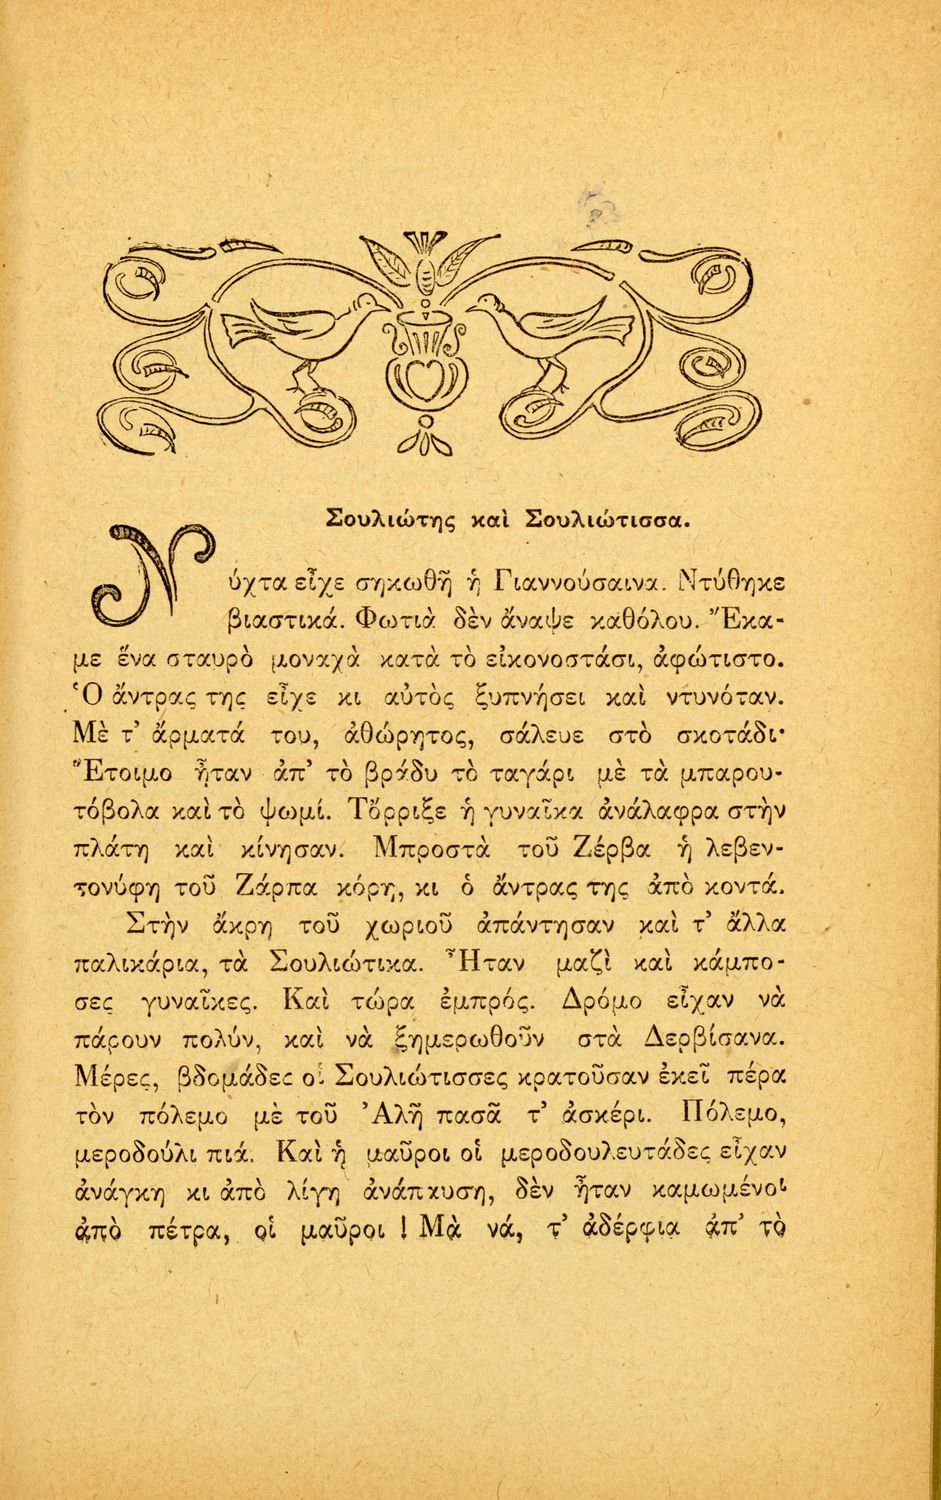 Σουλιώτης καὶ Σουλιώτισσα.
Νύχτα εἶχε σηκωθῆ ἡ Γιαννούσαινα. Ντύθηκε
βιαστικά. Φωτιὰ δὲν ἄναψε καθόλου. Ἔκα-
με ἕνα σταυρὸ μοναχὰ κατὰ τὸ εἰκονοστάσι, ἀφώτιστο.
Ὁ ἄντρας της εἶχε κι αὐτὸς ξυπνήσει καὶ ντυνόταν.
Μὲ τ' ἄρματά του, ἀθώρητος, σάλευε στὸ σκοτάδι·
Ἕτοιμο ἦταν ἀπ' τὸ βράδυ τὸ ταγάρι μὲ τὰ μπαρου-
τόβολα καὶ τὸ ψωμί. Τὄρριξε ἡ γυναῖκα ἀνάλαφρα στὴν
πλάτη καὶ κίνησαν. Μπροστὰ τοῦ Ζέρβα ἡ λεβεν-
τονύφη τοῦ Ζάρπα κόρη, κι ὁ ἄντρας της ἀπὸ κοντά.
Στὴν ἄκρη τοῦ χωριοῦ ἀπάντησαν καὶ τ' ἄλλα
παλικάρια, τὰ Σουλιώτικα. Ἦταν μαζὶ καὶ κάμπο-
σες γυναῖκες. Καὶ τώρα ἐμπρός. Δρόμο εἶχαν νὰ
πάρουν πολύν, καὶ νὰ ξημερωθοῦν στὰ Δερβίσανα.
Μέρες, βδομάδες οἱ Σουλιώτισσες κρατοῦσαν ἐκεῖ πέρα
τὸν πόλεμο μὲ τοῦ Ἀλῆ πασᾶ τ' ἀσκέρι. Πόλεμο,
μεροδούλι πιά. Καὶ ἡ μαῦροι οἱ μεροδουλευτάδες εἶχαν
ἀνάγκη κι ἀπὸ λίγη ἀνάπχυση, δὲν ἦταν καμωμένοι
ἀπὸ πέτρα, οἱ μαῦροι ! Μὰ νά, τ' ἀδέρφια ἀπ' τὸ